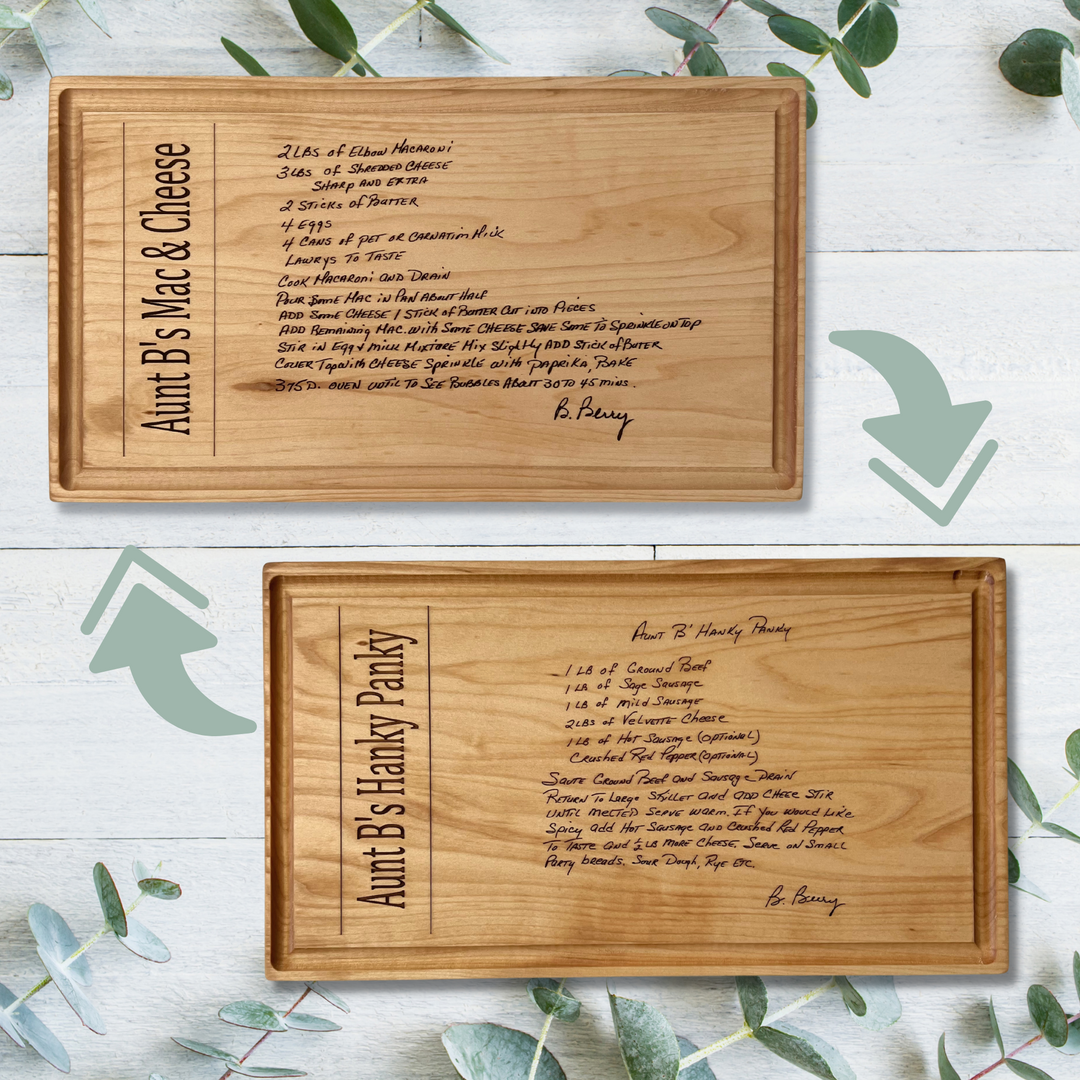 Aunt B's Mac & Cheese
2 LBS of Elbow Macaroni
3 LBS of Shredded Cheese
Sharp and Extra
2 Sticks of Butter
4 Eggs
4 Cans of Pet or Carnation Milk
Lawrys To Taste
Cook Macaroni and Drain
Pour Some Mac in Pan About Half
Add Some Cheese 1 Stick of Butter Cut into Pieces
Add Remaining Mac. with Some Cheese Save Some To Sprinkle on Top
Stir in Egg & Milk Mixture Mix Slightly Add Stick of Butter
Cover Top with Cheese Sprinkle with Paprika, Bake
375 D. oven until To See Bubbles About 30 To 45 mins.
B. Berry
Aunt B's Hanky Panky
Aunt B' Hanky Panky
1 LB of Ground Beef
1 LB of Sage Sausage
1 LB of Mild Sausage
2 LBs of Velvette Cheese
1 LB of Hot Sausage (optional)
Crushed Red Pepper (optional)
Saute Ground Beef and Sausage Drain
Return To Large Skillet and add Cheese Stir
until melted Serve warm. If you would Like
Spicy add Hot Sausage and Crushed Red Pepper
To Taste and ½ LB more Cheese. Serve on Small
Party breads. Sour Dough, Rye Etc.
B. Berry